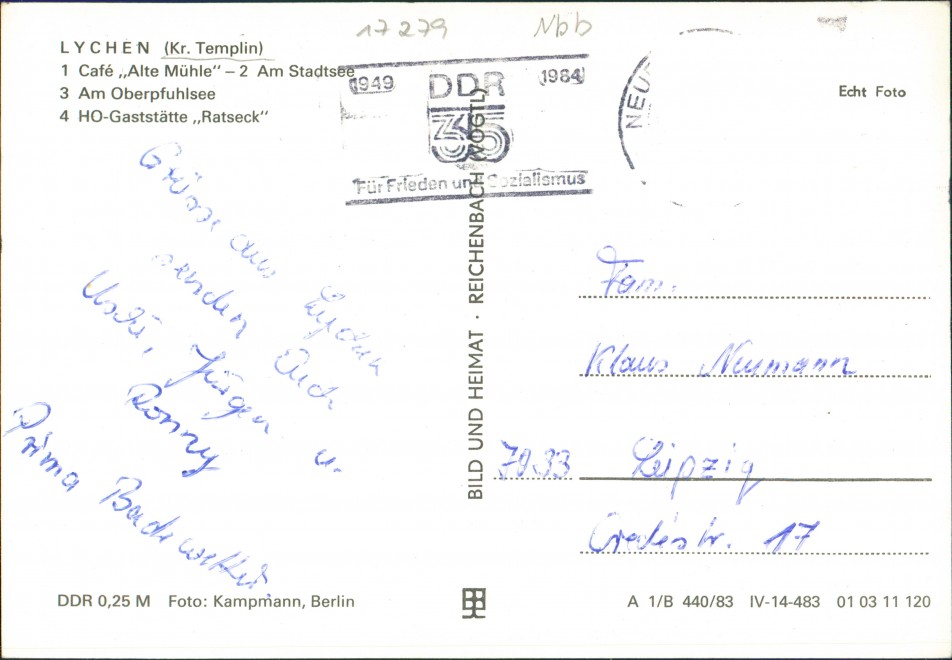 17 279 Nbb
LYCHEN (Kr. Templin)
1 Café „Alte Mühle" – 2 Am Stadtsee
3 Am Oberpfuhlsee
4 HO-Gaststätte „Ratseck"
1949 DDR 1984
35
Für Frieden und Sozialismus
NEUS
Echt Foto
Grüsse aus Lychen
senden Euch
Uschi, Jürgen u.
Ronny
Prima Badewetter
BILD UND HEIMAT · REICHENBACH (VOGTL)
Fam.
Klaus Neumann
7033 Leipzig
Credéstr. 17
DDR 0,25 M Foto: Kampmann, Berlin
A 1/B 440/83 IV-14-483 01 03 11 120